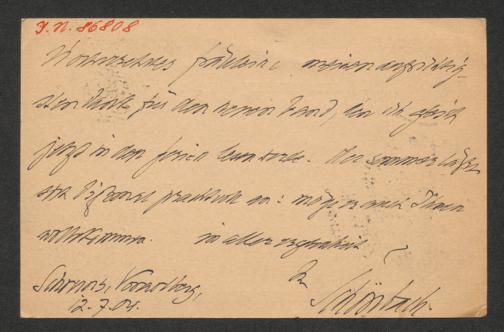 J.N. 86808
Hochverehrtes Fräulein! meinen aufrichtig-
sten Dank für den neuen Band, den ich gleich
jetzt in den ferien lesen werde. Der sommer lässt
sich prachtvoll an: möge er auch Ihnen
wolbekommen. in aller ergebenheit
Ihr
Schruns, Vorarlberg, Schönbach.
12.7.04.